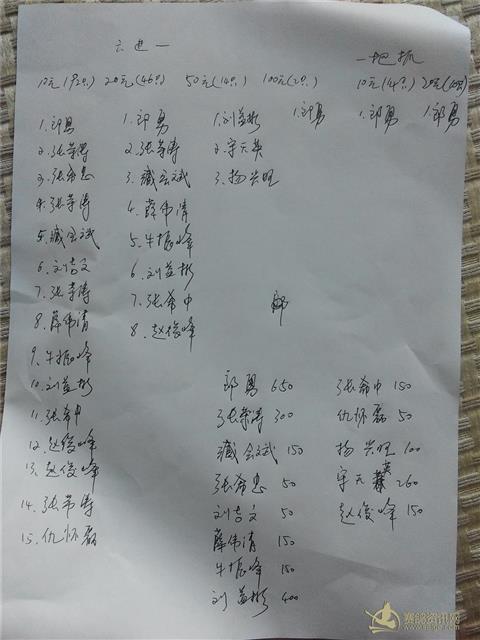 六进一
一把抓
10元(92只) 20元(46只) 50元(14只) 100元(2只)
10元(14只) 20元(10只)
1.郎勇
2.张荣涛
3.张希忠
4.张荣涛
5.臧会斌
6.刘吉文
7.张荣涛
8.薛伟清
9.牛振峰
10.刘益彬
11.张希中
12.赵俊峰
13.赵俊峰
14.张荣涛
15.仇怀磊
1.郎勇
2.张荣涛
3.臧会斌
4.薛伟清
5.牛振峰
6.刘益彬
7.张希中
8.赵俊峰
1.刘益彬
2.宋元英
3.杨兴旺
1.郎勇
1.郎勇
1.郎勇
郎
郎勇 650
张荣涛 300
臧会斌 150
张希忠 50
刘吉文 50
薛伟清 150
牛振峰 150
刘益彬 400
张希中 150
仇怀磊 50
杨兴旺 100
宋元英 260
赵俊峰 150
赛鸽资讯网